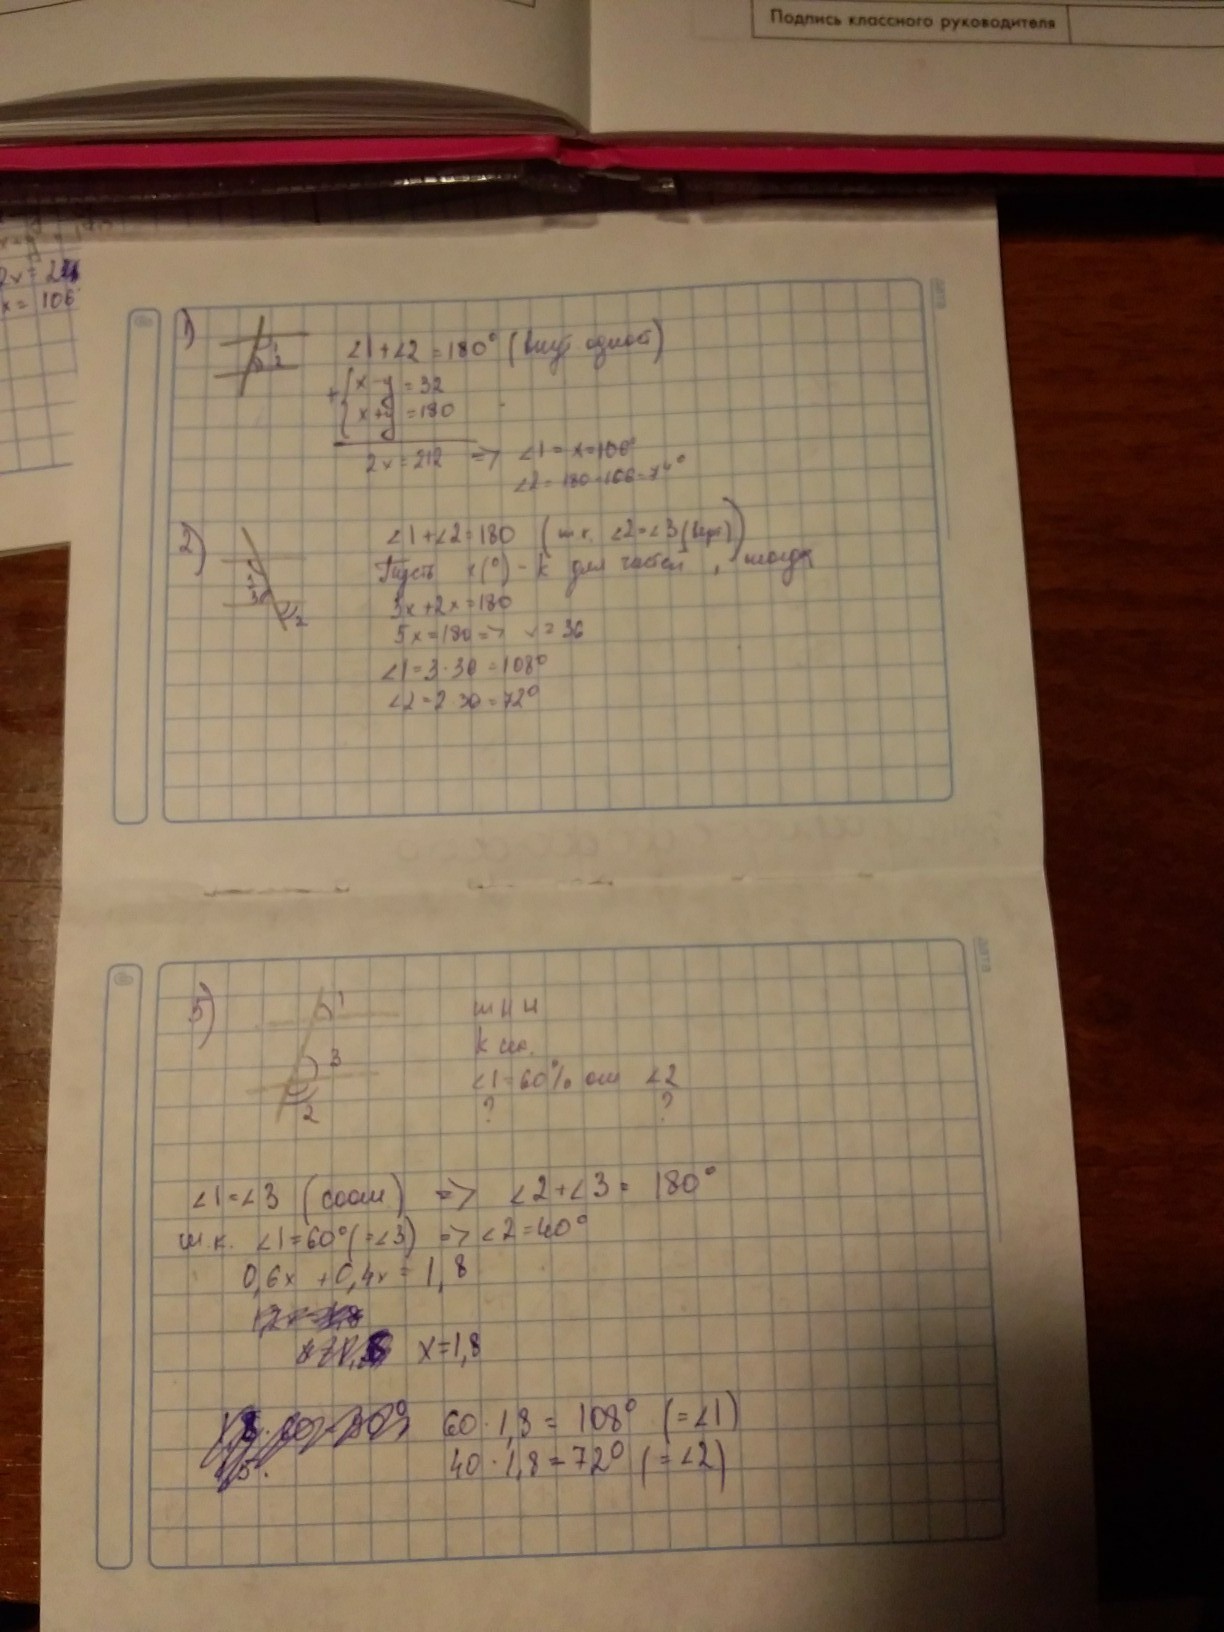 Подпись классного руководителя
2x = 212
x = 106
1)
1
2
∠1+∠2 = 180° (внут одност)
+{ x - y = 32
x + y = 180
2x = 212 => ∠1 = x = 106°
∠2 = 180-106=74°
2)
1
3
2
∠1+∠2=180 (т.к. ∠2=∠3 (верт))
Пусть x(°) - к для частей, тогда
3x+2x=180
5x=180 => x=36
∠1=3·36=108°
∠2=2·36=72°
3)
1
3
2
m || n
k сек.
∠1 - 60% от ∠2
? ?
∠1=∠3 (соотв) => ∠2+∠3= 180°
т.к. ∠1=60°(=∠3) => ∠2=40°
0,6x + 0,4x = 1,8
x=1,8
60·1,8 = 108° (=∠1)
40·1,8 = 72° (=∠2)